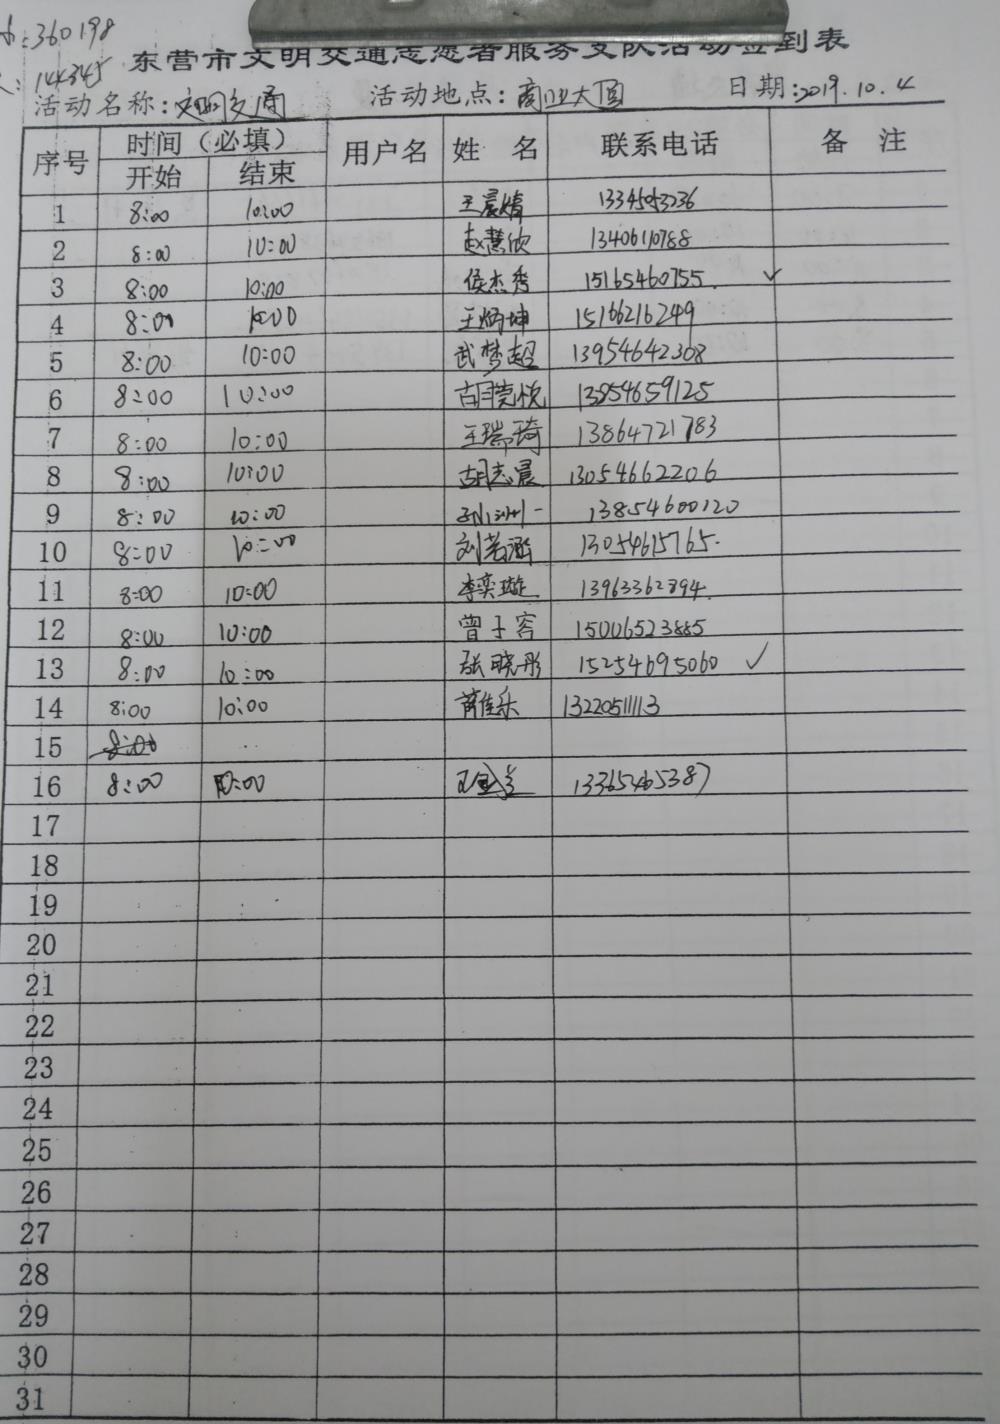 360198
144345
东营市文明交通志愿者服务支队活动签到表
活动名称:文明交通 活动地点:商业大厦 日期:2019.10.4
序号 时间(必填) 用户名 姓 名 联系电话 备 注
开始 结束
1 8:00 10:00 王晨婧
2 8:00 10:00 赵慧欣 13406110788
3 8:00 10:00 侯杰秀 15165460755. ✓
4 8:00 10:00 王炳坤 15166216249
5 8:00 10:00 武梦超 13954642308
6 8:00 10:00 胡莞悦
7 8:00 10:00 王瑞琦 13864721783
8 8:00 10:00 胡志晨 13054662206
9 8:00 10:00 13854600120
10 8:00 10:00 刘若涵 13054615765.
11 8:00 10:00 李奕璇 13963362894.
12 8:00 10:00 曾子容 15006523885
13 8:00 10:00 张晓彤 15254695060 ✓
14 8:00 10:00 13220511113
15 8:00
16 8:00 10:00 13365465387
17
18
19
20
21
22
23
24
25
26
27
28
29
30
31